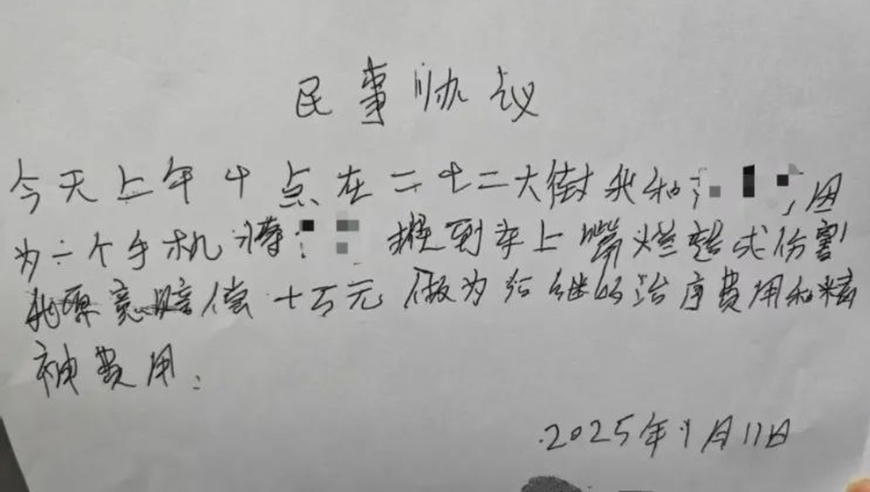 民事协议
今天上午十点在二十二大街我和 ,因
为一个手机将 推到车上嘴烂 成伤害
我愿意赔偿十万元做为后继的治疗费用和精
神费用:
2025年9月11日